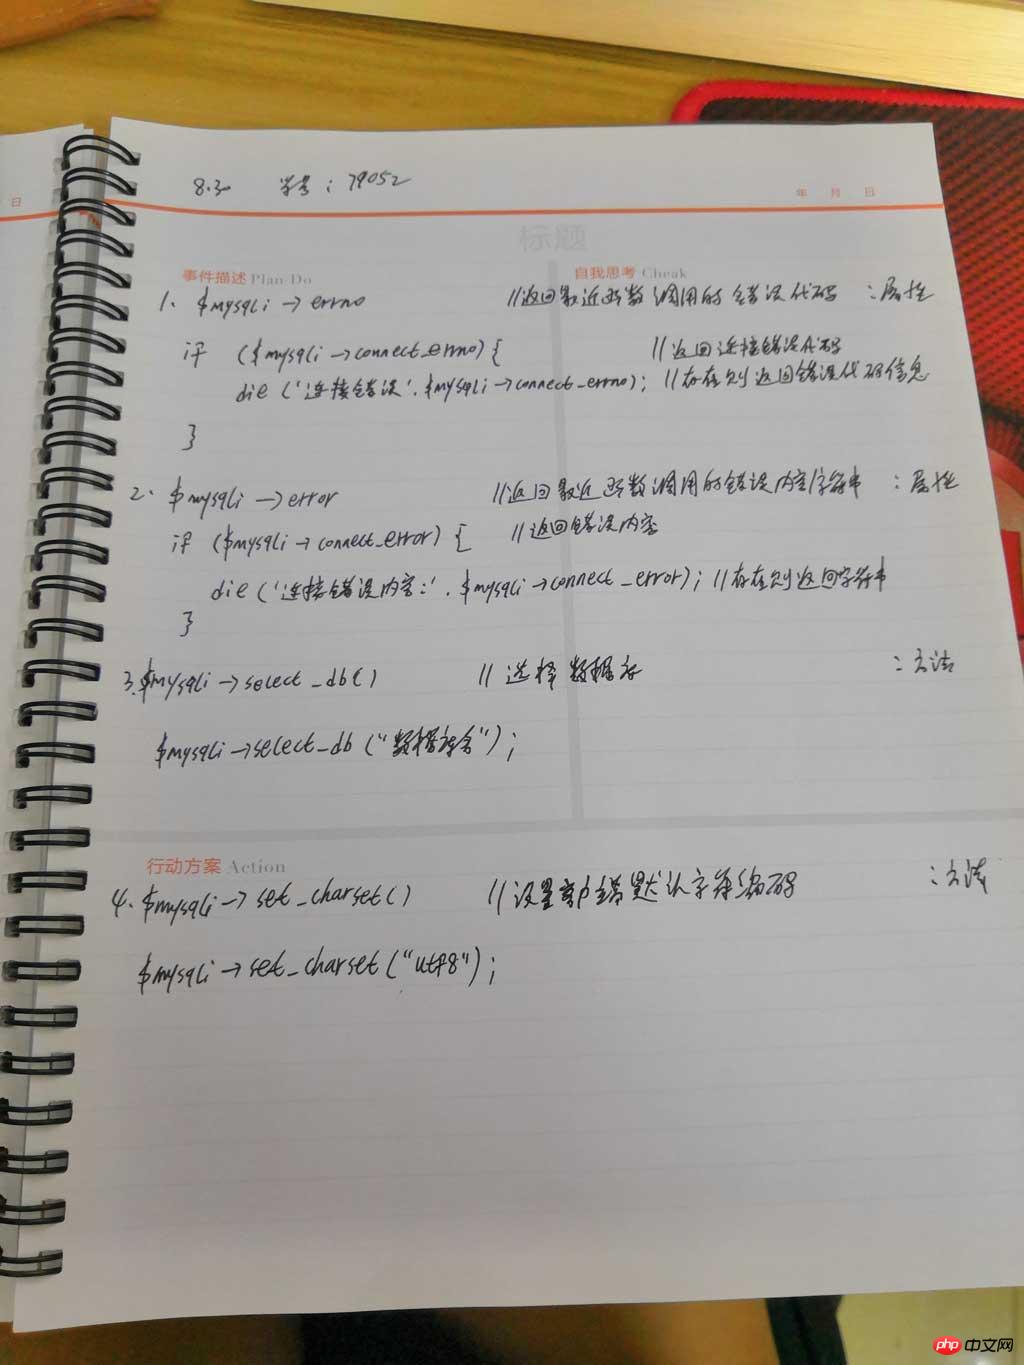 日
8.30 学号：79052
年 月 日
标题
事件描述 Plan-Do 自我思考 Cheak
1、$mysqli->errno //返回最近函数调用的错误代码 ：属性
if ($mysqli->connect_errno){ //返回连接错误代码
die ('连接错误'.$mysqli->connect_errno); //存在则返回错误代码信息
}
2、$mysqli->error //返回最近函数调用的错误内容字符串 ：属性
if ($mysqli->connect_error) { //返回错误内容
die ('连接错误内容:'.$mysqli->connect_error); //存在则返回字符串
}
3.$mysqli->select_db() //选择数据库 ：方法
$mysqli->select_db ("数据库名");
行动方案 Action
4、$mysqli->set_charset() //设置客户端默认字符编码 ：方法
$mysqli->set_charset("utf8");
php 中文网